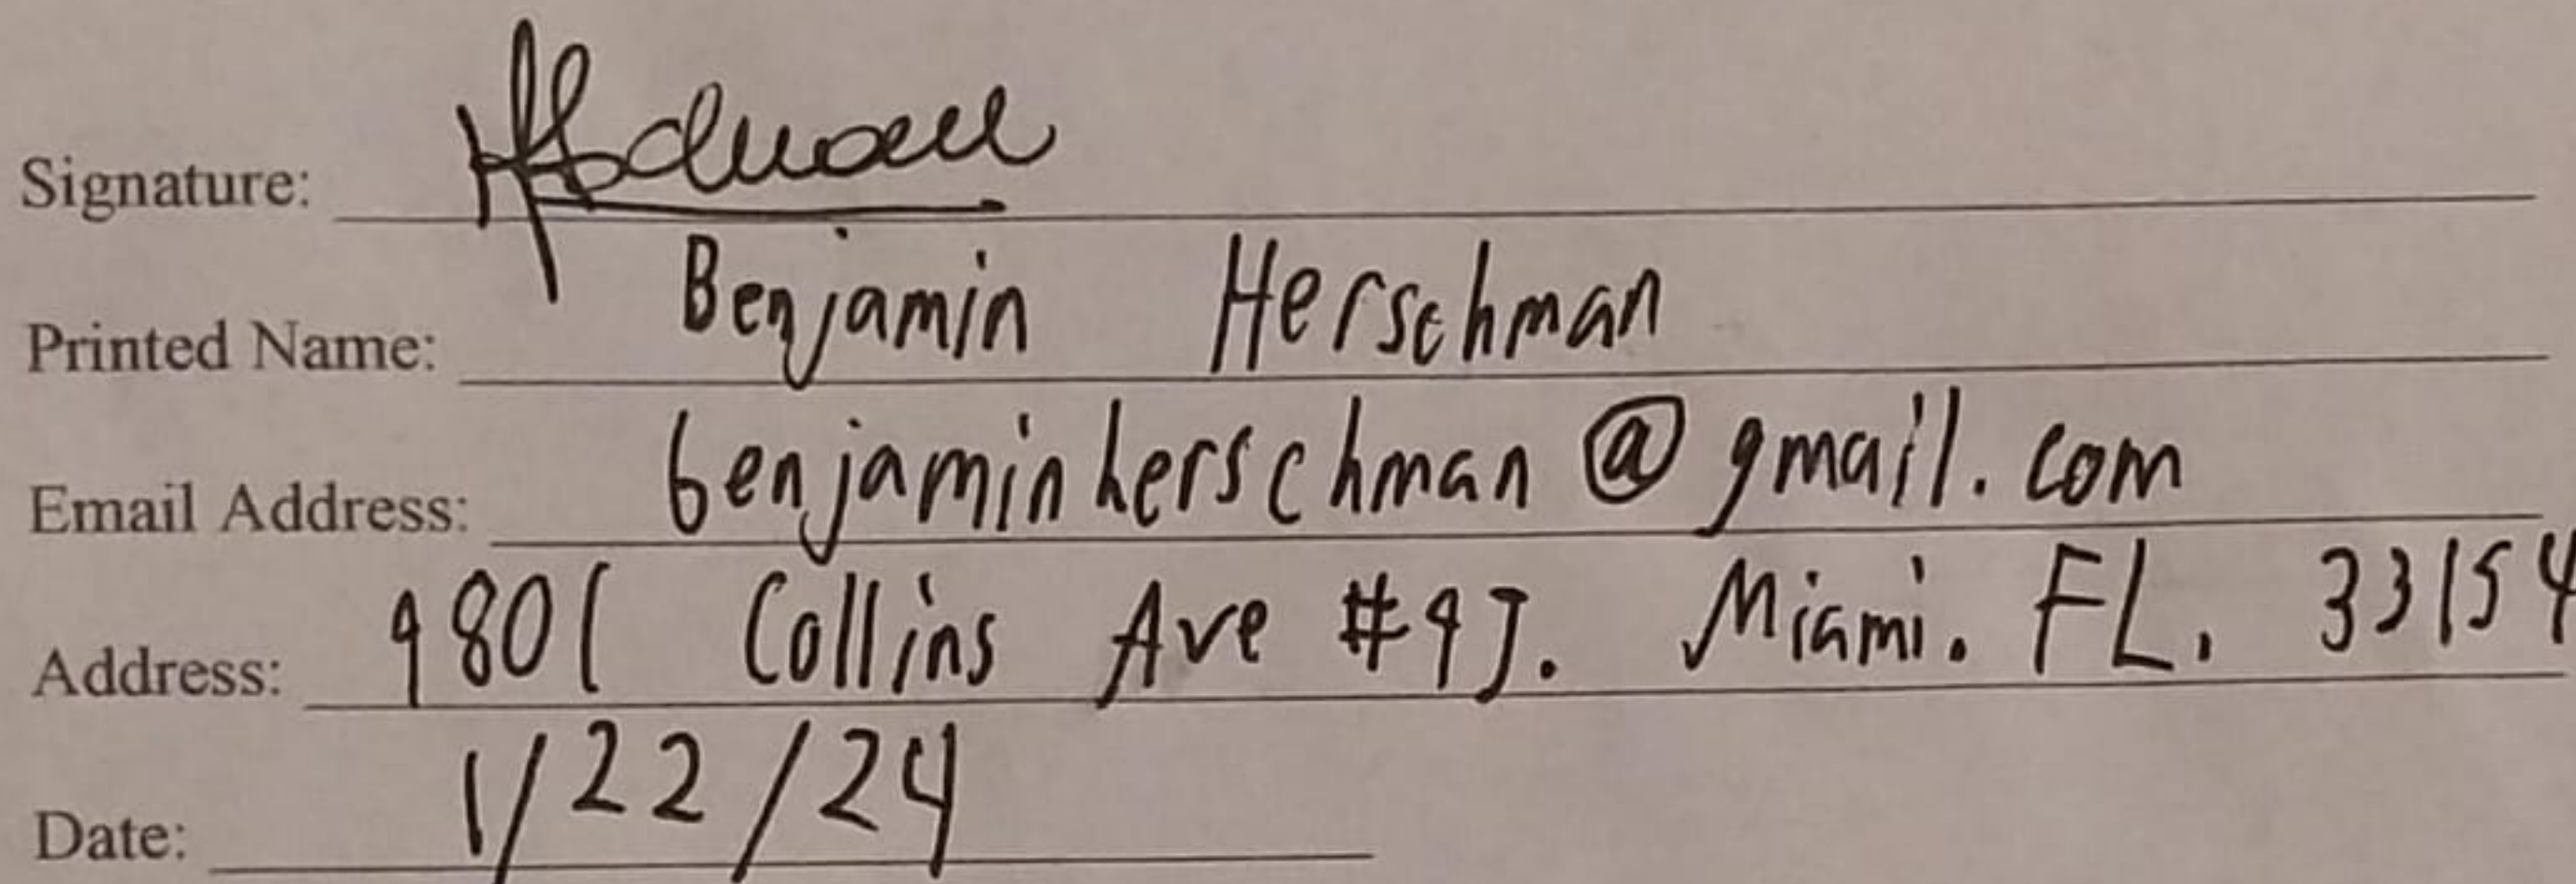 Signature:
Printed Name: Benjamin Herschman
Email Address: benjaminherschman@gmail.com
Address: 9801 Collins Ave #9J. Miami. FL. 33154
Date: 1/22/24